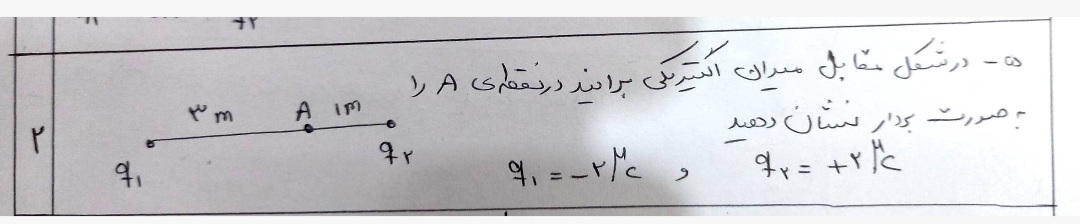 ۵- در شکل مقابل میدان الکتریکی برایند در نقطه‌ی A را
به صورت بردار نشان دهید
۳m A ۱m
q۱ q۲ q۱ = -۲μc و q۲ = +۲μc
۲